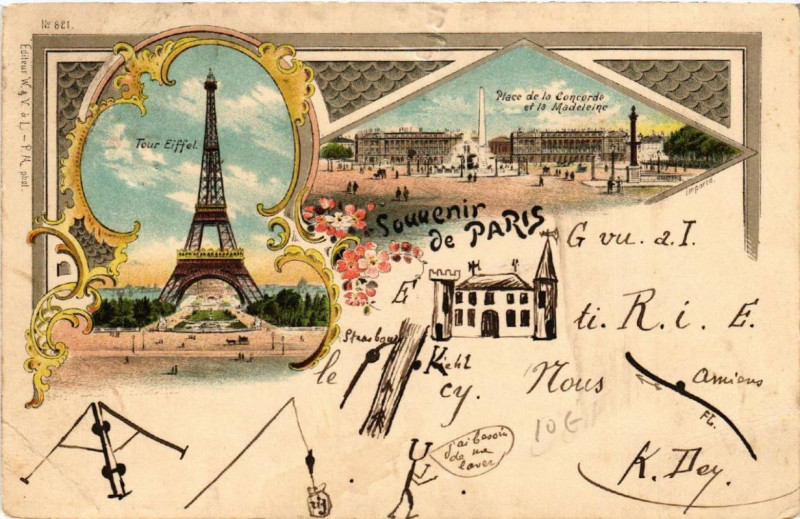 № 621.
Editeur W. & V. à L. - P. M. phot.
Tour Eiffel.
Place de la Concorde
et la Madeleine
Importé.
Souvenir
de PARIS
G vu. a. I.
E
ti. R. i. E.
Strasbourg
Kehl
le
cy. Nous
Amiens
Fl.
10€
U
j'ai besoin
de me
laver
K. Dey.